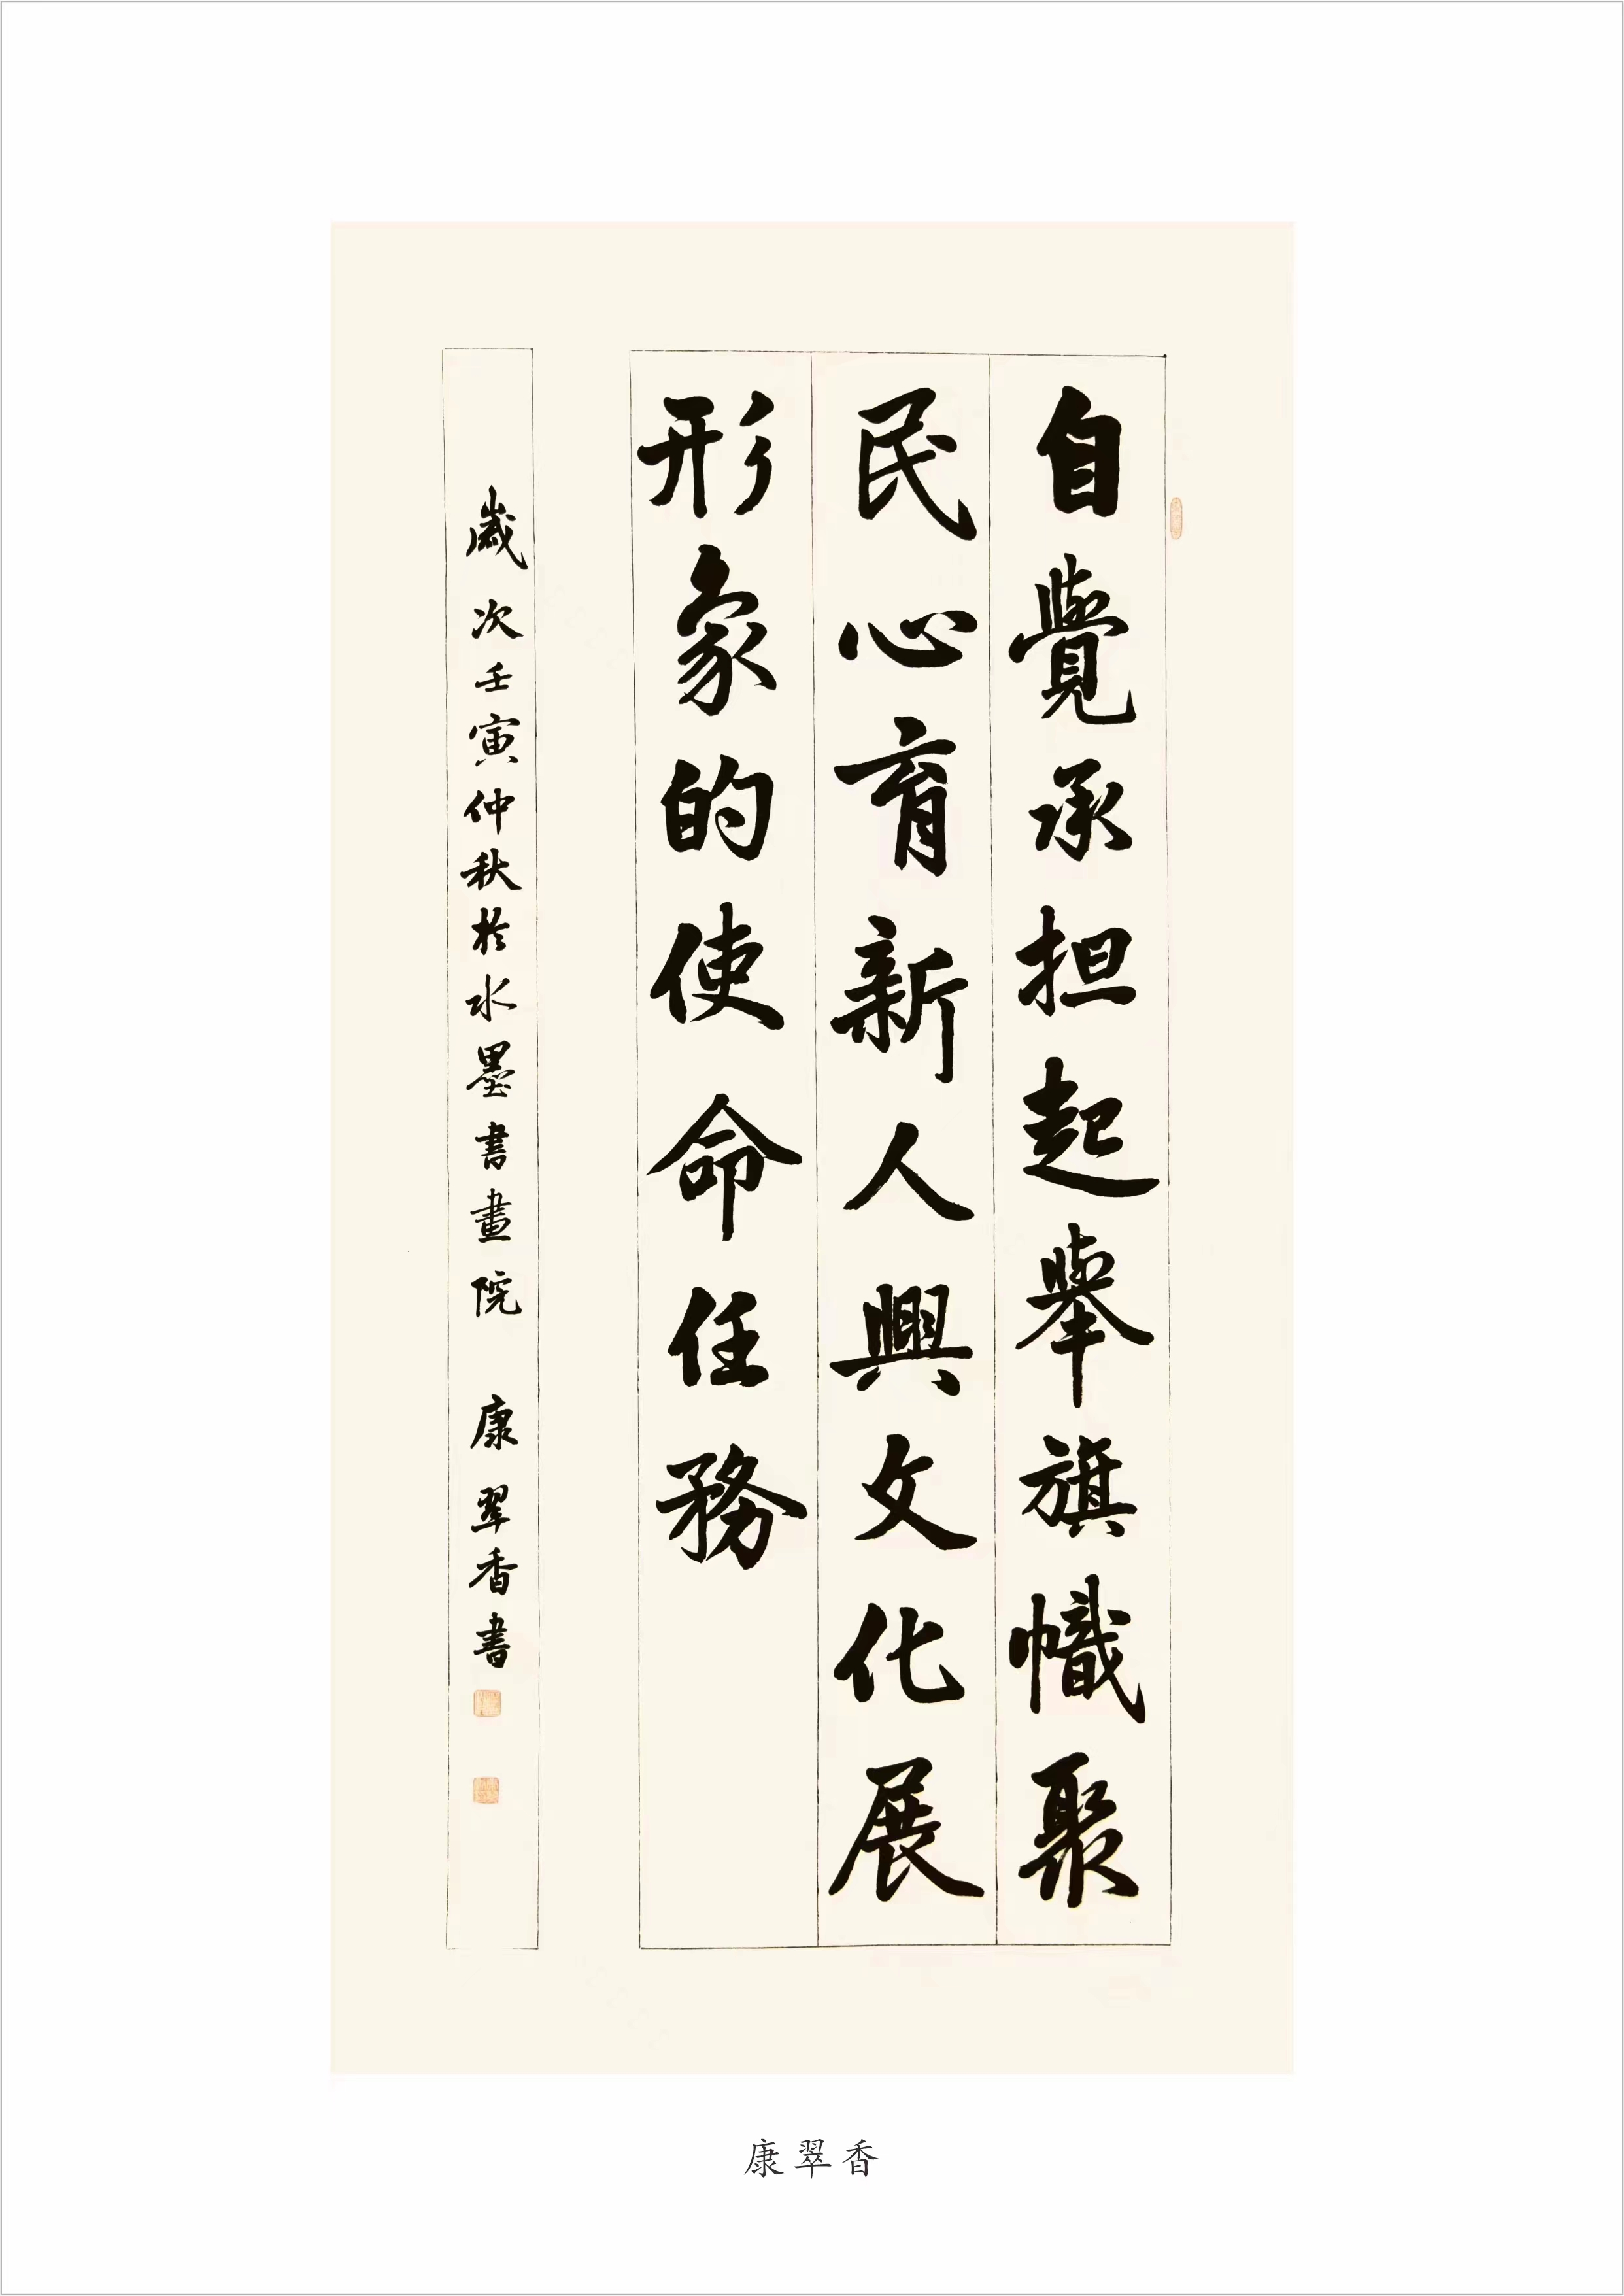 自覺承担起舉旗幟聚
民心育新人興文化展
形象的使命任務
歲次壬寅仲秋於水墨書畫院 康翠香書
康翠香